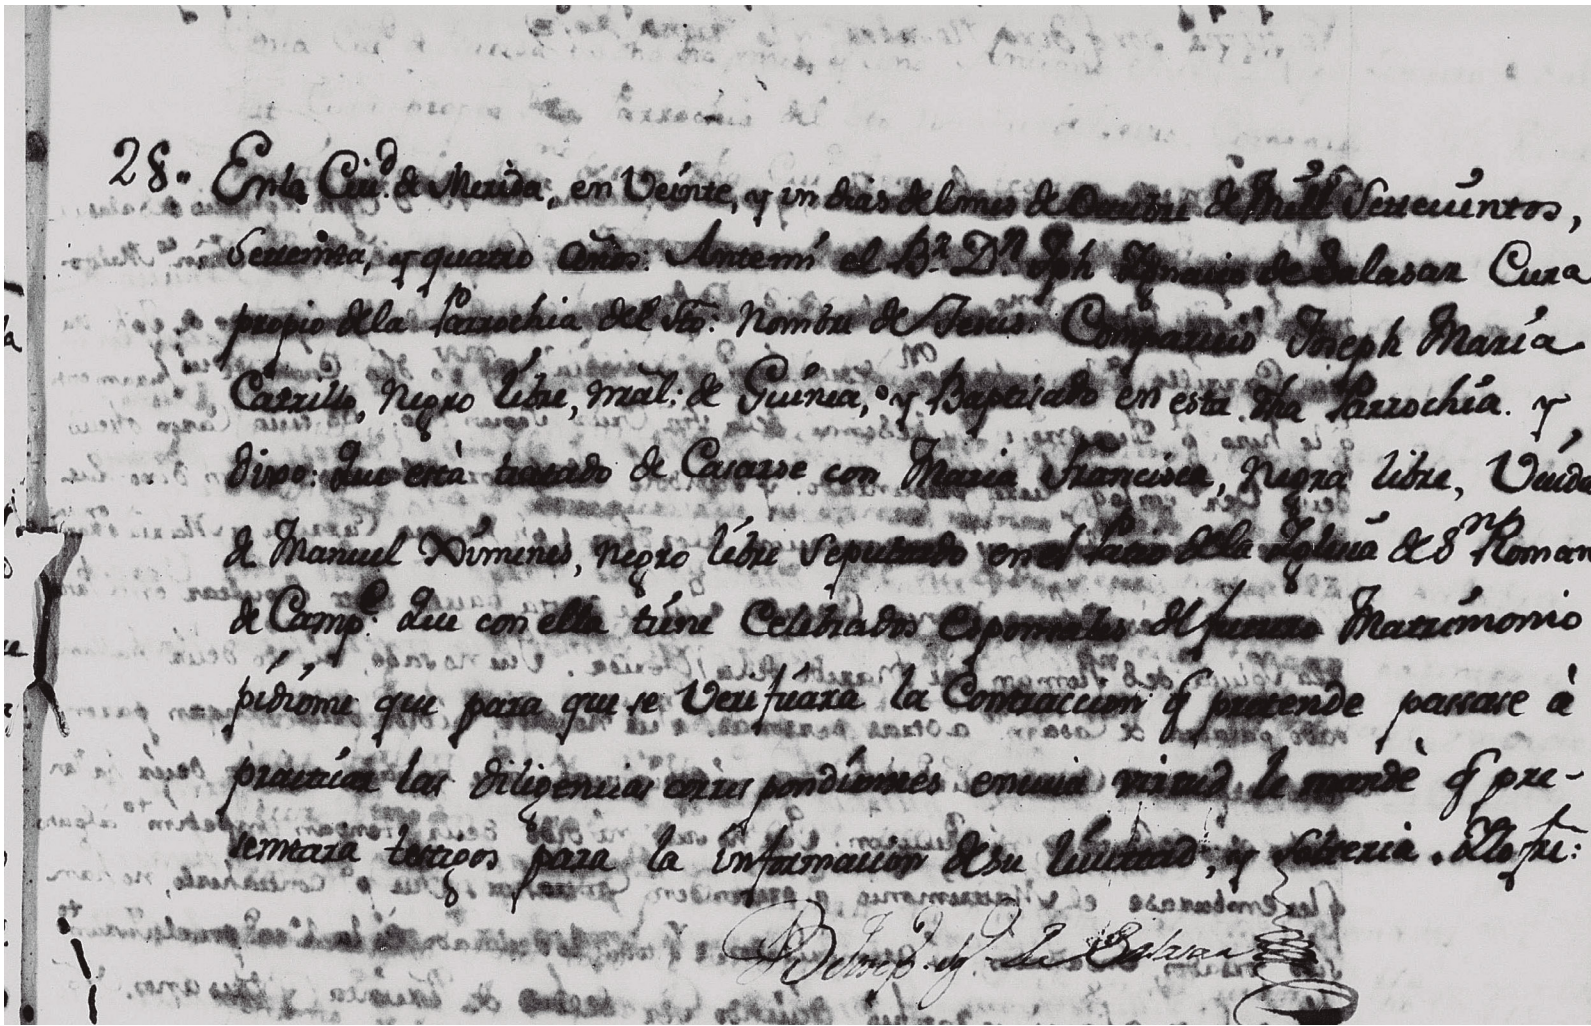 28. En la Ciud. de Merida, en Veinte, y un dias del mes de Octubre de Mill Setecientos,
Settenta, y quatro años. Antemi el Br. Dn. Jph Ignacio de Salasar Cura
propio de la Parrochia del Sto. Nombre de Jesus. Comparecio Joseph Maria
Carrillo, Negro libre, nral. de Guinea, y Baptisado en esta dha Parrochia. y
dixo: Que està tratado de Casarse con Maria Francisca, Negra libre, Viuda
de Manuel Ximenes, negro libre sepultado en el Patio de la Iglecia de Sn. Roman
de Campe. Que con ella tiene Celebrados esponsales de futuro Matrimonio
pidiome que para que se Verificara la Contraccion q pretende passase à
practicar las diligencias correspondientes en cuia virtud le mandè q pre-
sentara testigos para la informacion de su livertad, y solteria. Doy fee:
Br Josep. Ig. de Salasar